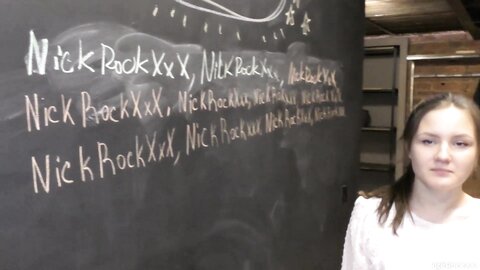 NickRockXxX, NickRockXxX, NickRockXxX
NickRockXxX, NickRockXxX, NickRockXxX, NickRockXxX
NickRockXxX, NickRockXxX, NickRockXxX, NickRockXxX